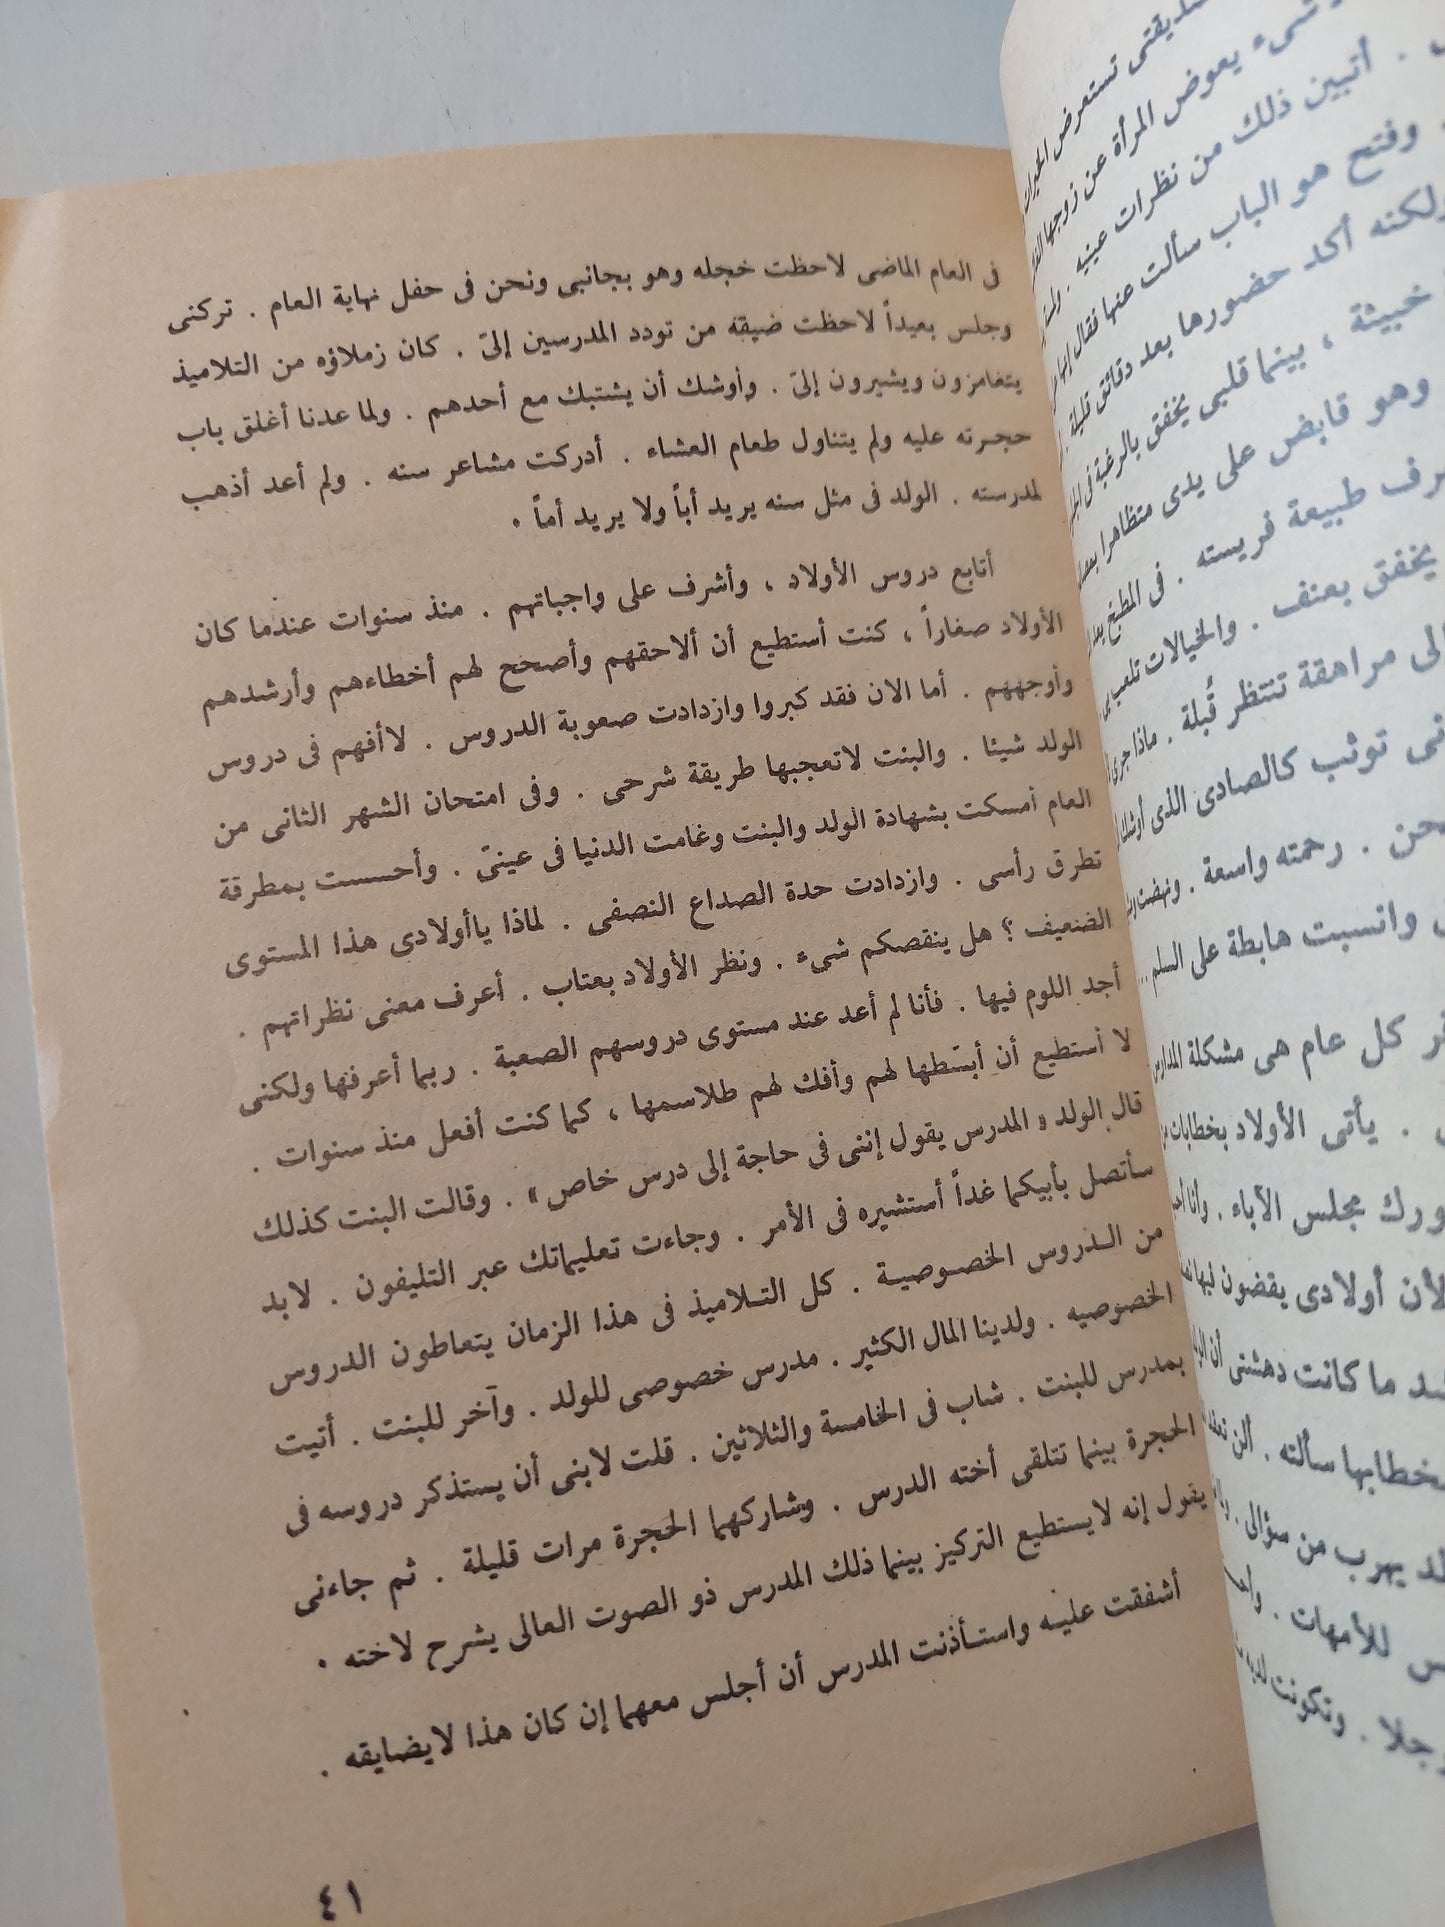 فى العام الماضى لاحظت خجله وهو بجانبى ونحن فى حفل نهاية العام . تركنى
وجلس بعيداً لاحظت ضيقه من تودد المدرسين إلىّ . كان زملاؤه من التلاميذ
يتغامزون ويشيرون إلىّ . وأوشك أن يشتبك مع أحدهم . ولما عدنا أغلق باب
حجرته عليه ولم يتناول طعام العشاء . أدركت مشاعر سنه . ولم أعد أذهب
لمدرسته . الولد فى مثل سنه يريد أباً ولا يريد أماً .
أتابع دروس الأولاد ، وأشرف على واجباتهم . منذ سنوات عندما كان
الأولاد صغاراً ، كنت أستطيع أن ألاحقهم وأصحح لهم أخطاءهم وأرشدهم
وأوجههم . أما الان فقد كبروا وازدادت صعوبة الدروس . لاأفهم فى دروس
الولد شيئا . والبنت لاتعجبها طريقة شرحى . وفى امتحان الشهر الثانى من
العام أمسكت بشهادة الولد والبنت وغامت الدنيا فى عينىّ . وأحسست بمطرقة
تطرق رأسى . وازدادت حدة الصداع النصفى . لماذا ياأولادى هذا المستوى
الضعيف ؟ هل ينقصكم شىء . ونظر الأولاد بعتاب . أعرف معنى نظراتهم .
أجد اللوم فيها . فأنا لم أعد عند مستوى دروسهم الصعبة . ربما أعرفها ولكنى
لا أستطيع أن أبسّطها لهم وأفك لهم طلاسمها ، كما كنت أفعل منذ سنوات .
قال الولد « المدرس يقول إننى فى حاجة إلى درس خاص » . وقالت البنت كذلك
سأتصل بأبيكما غداً أستشيره فى الأمر . وجاءت تعليماتك عبر التليفون . لابد
من الدروس الخصوصية . كل التلاميذ فى هذا الزمان يتعاطون الدروس
الخصوصيه . ولدينا المال الكثير . مدرس خصوصى للولد . وآخر للبنت . أتيت
بمدرس للبنت . شاب فى الخامسة والثلاثين . قلت لابنى أن يستذكر دروسه فى
الحجرة بينما تتلقى أخته الدرس . وشاركهما الحجرة مرات قليلة . ثم جاءنى
يقول إنه لايستطيع التركيز بينما ذلك المدرس ذو الصوت العالى يشرح لاخته .
أشفقت عليه واستأذنت المدرس أن أجلس معهما إن كان هذا لايضايقه .
٤١
تستعرض
شىء يعوض المرأة عن زوجها
. أتبين ذلك من نظرات عينيه .
وفتح هو الباب سألت عنها فقال
ولكنه أكد حضورها بعد دقائق قليلة
خبيثة ، بينما قلبى يخفق بالرغبة فى
وهو قابض على يدى متظاهرا
طبيعة فريسته . فى المطبخ
يخفق بعنف . والخيالات تلعب
مراهقة تنتظر قُبلة . ماذا جرى
توثب كالصادى الذى
. رحمته واسعة . ونهضت
وانسبت هابطة على السلم ...
كل عام هى مشكلة المدارس
. يأتى الأولاد بخطابات
مجلس الآباء . وأنا
لأن أولادى يقضون فيها
ما كانت دهشتى أن
بخطابها سألته . ألن
يهرب من سؤالى .
للأمهات .
. وتكونت لديه